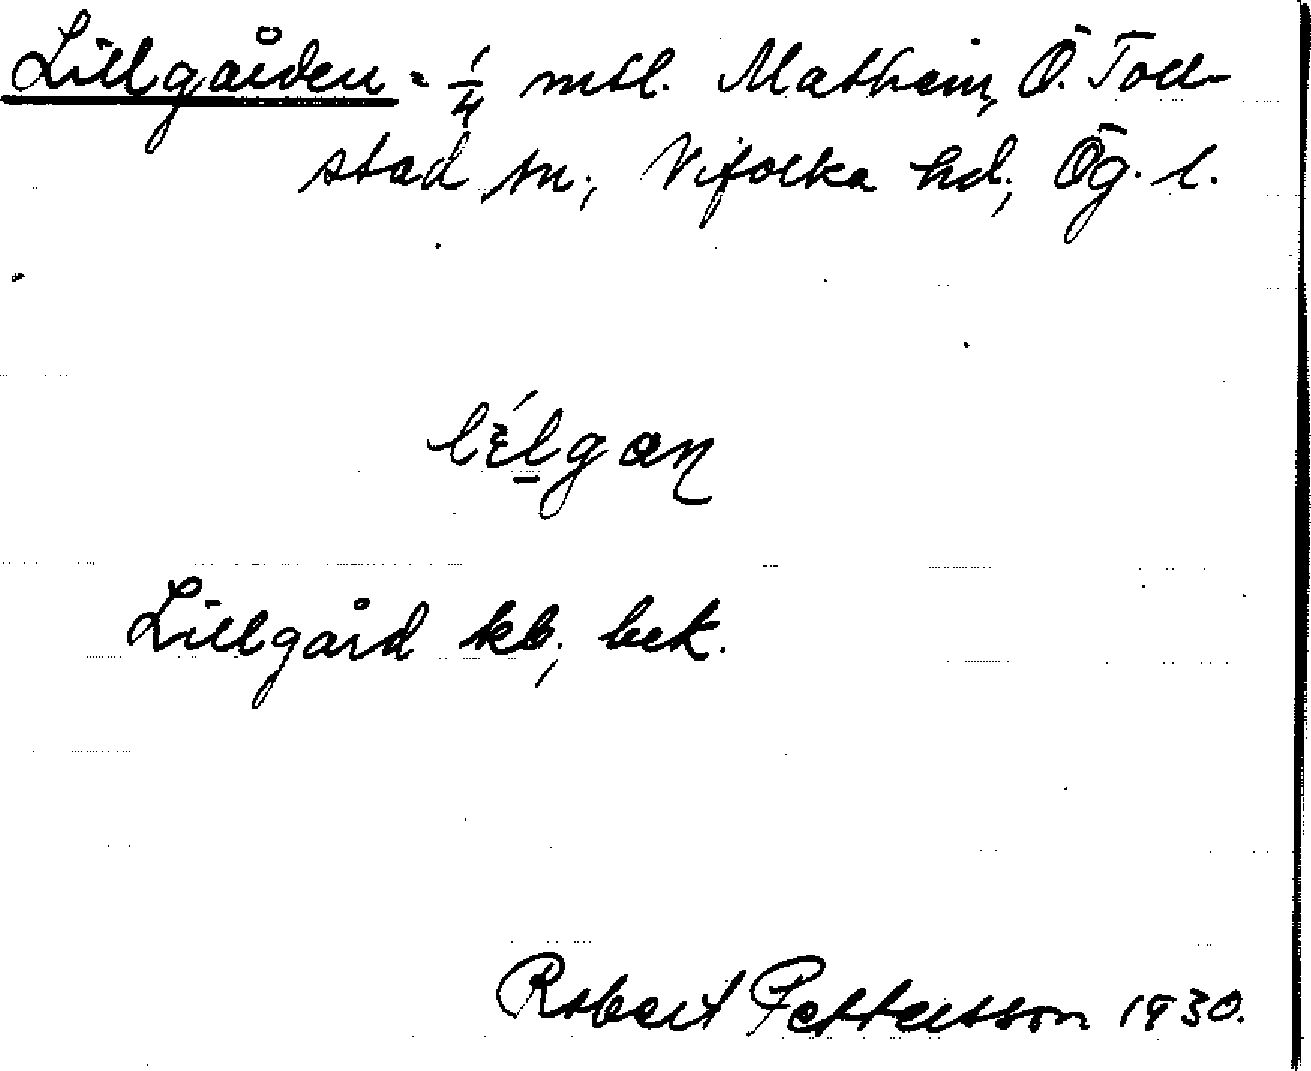 Lillgården - 1/4 mtl. Mathem, Ö. Toll-
stad sn; Vifolka hd; Ög. l.
Lillgård kb; bek.
Robert Pettersson 1930.